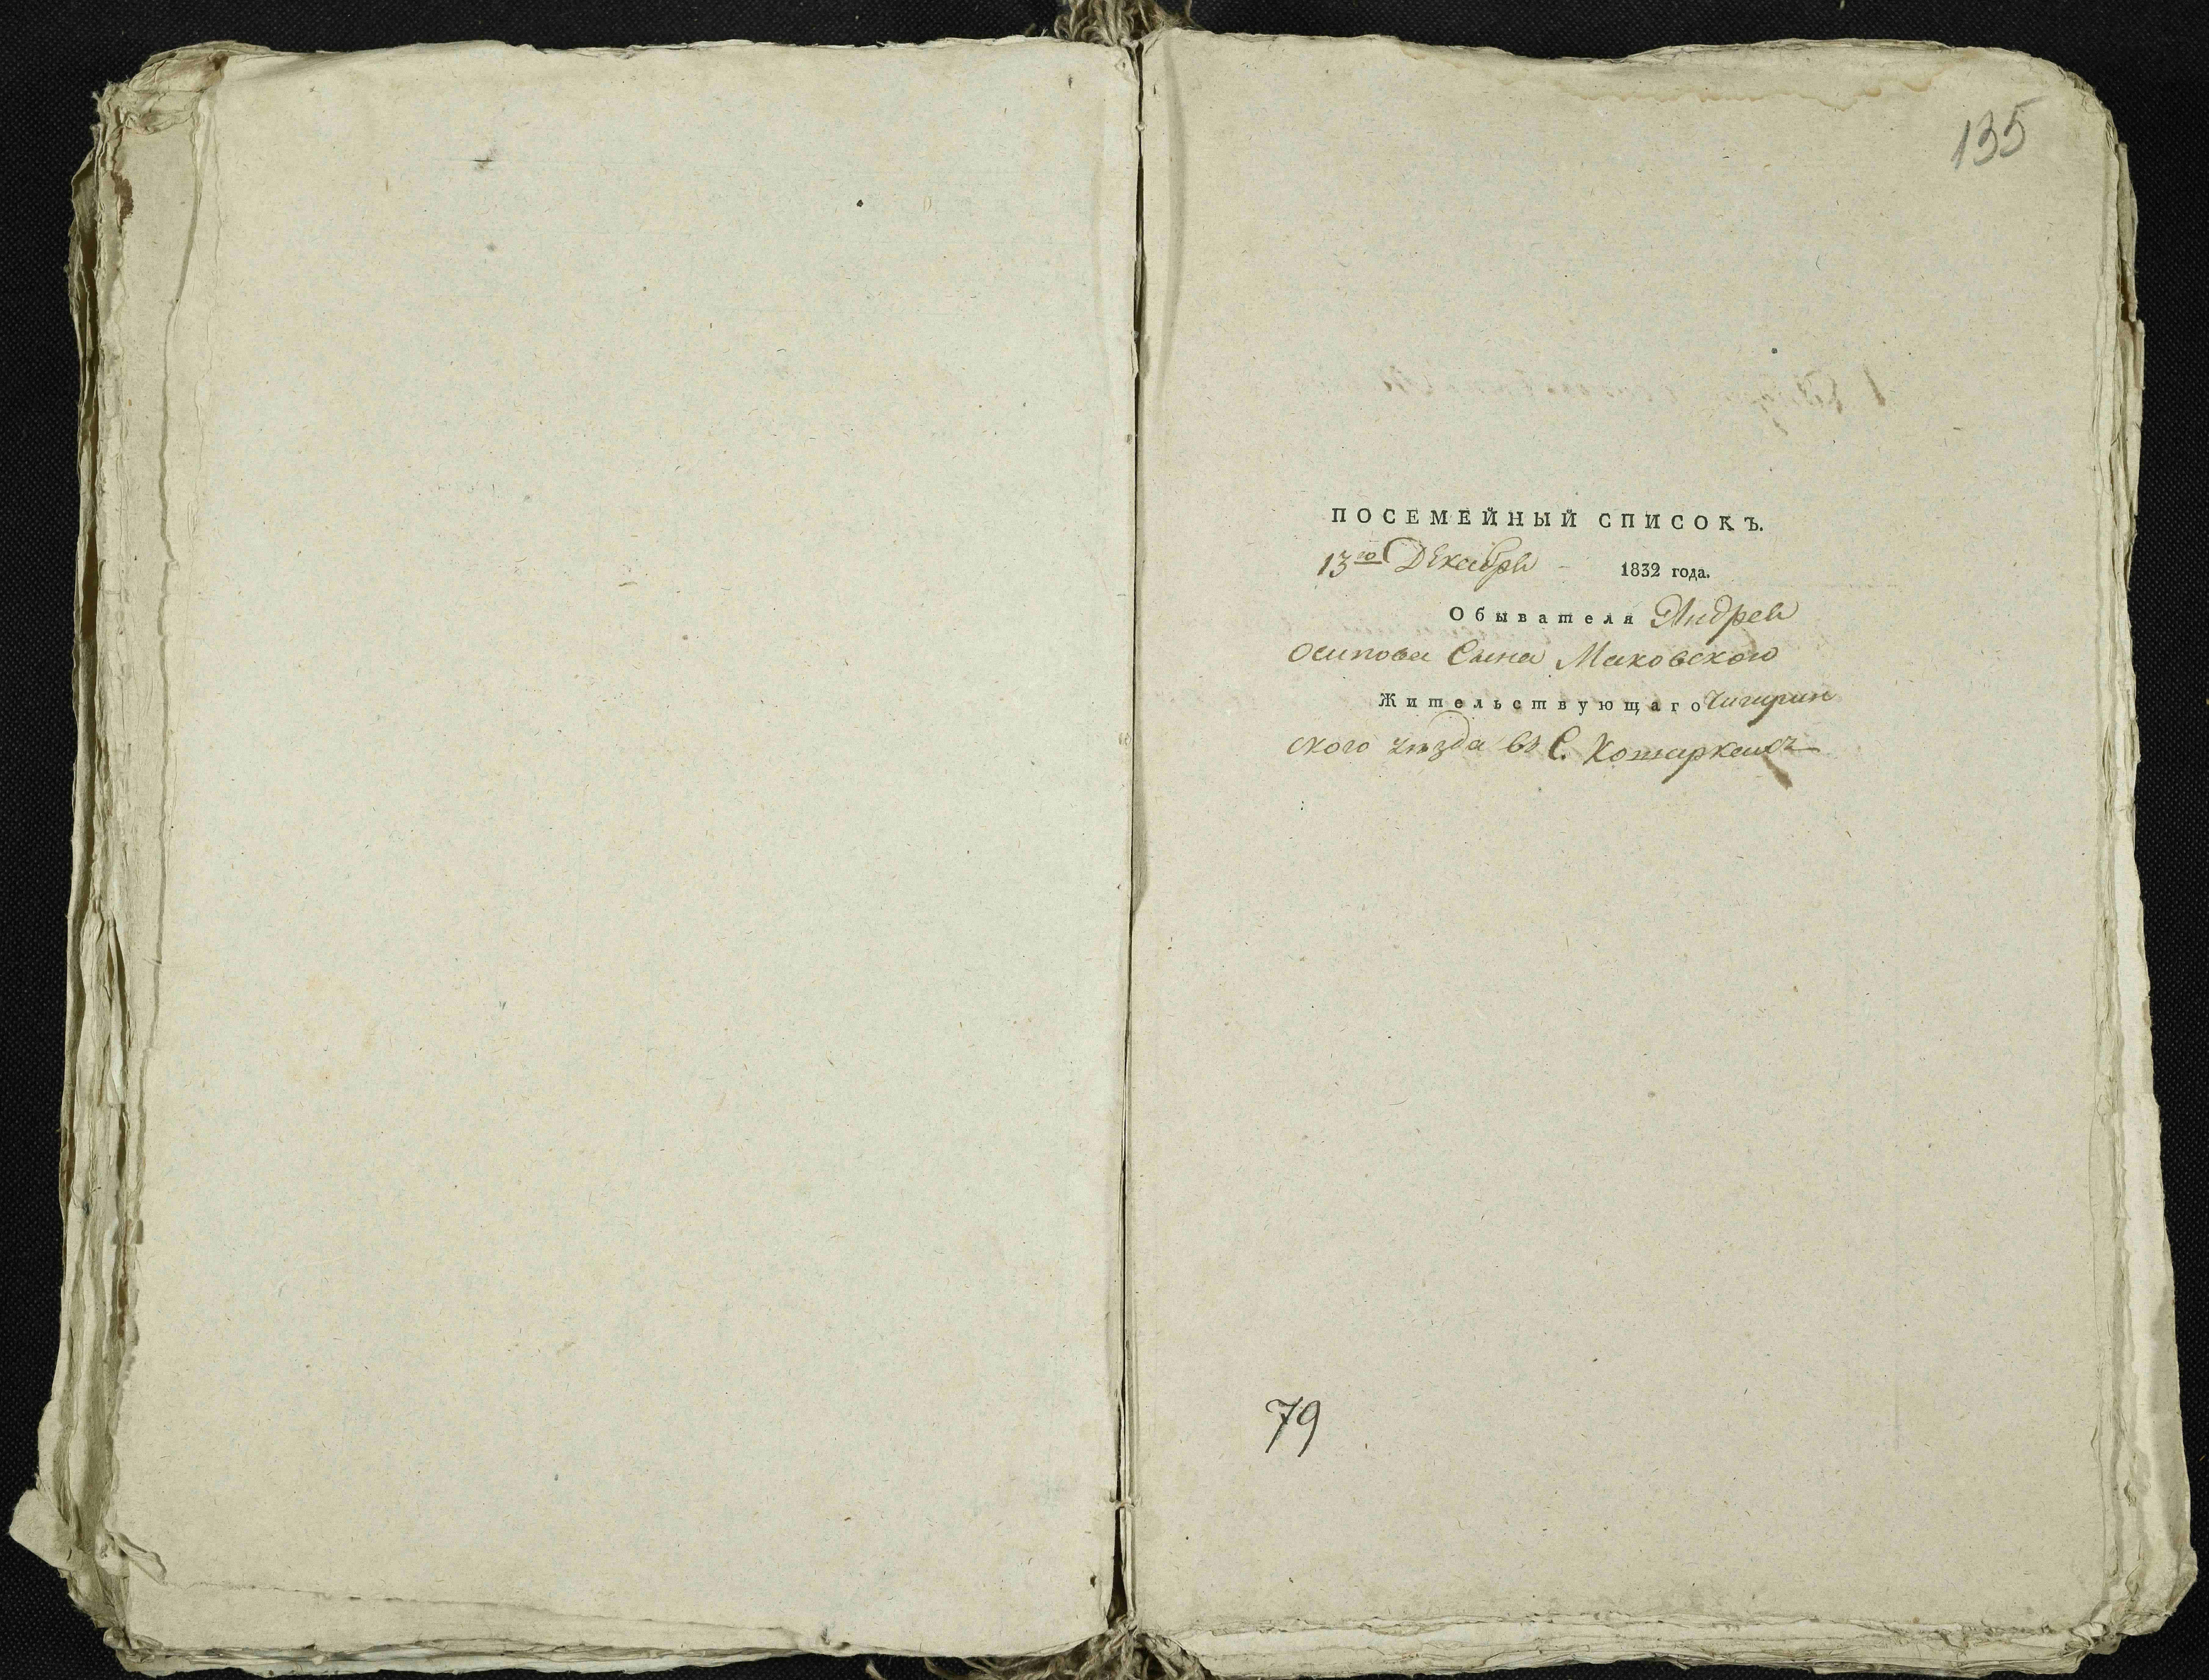 135
ПОСЕМЕЙНЫЙ СПИСОКЪ.
13го Декабря 1832 года.
Обывателя Андрея
Осипова Сына Маковского
Жительствующаго Чигирин
ского уѣзда въ С. Котаркахъ
79